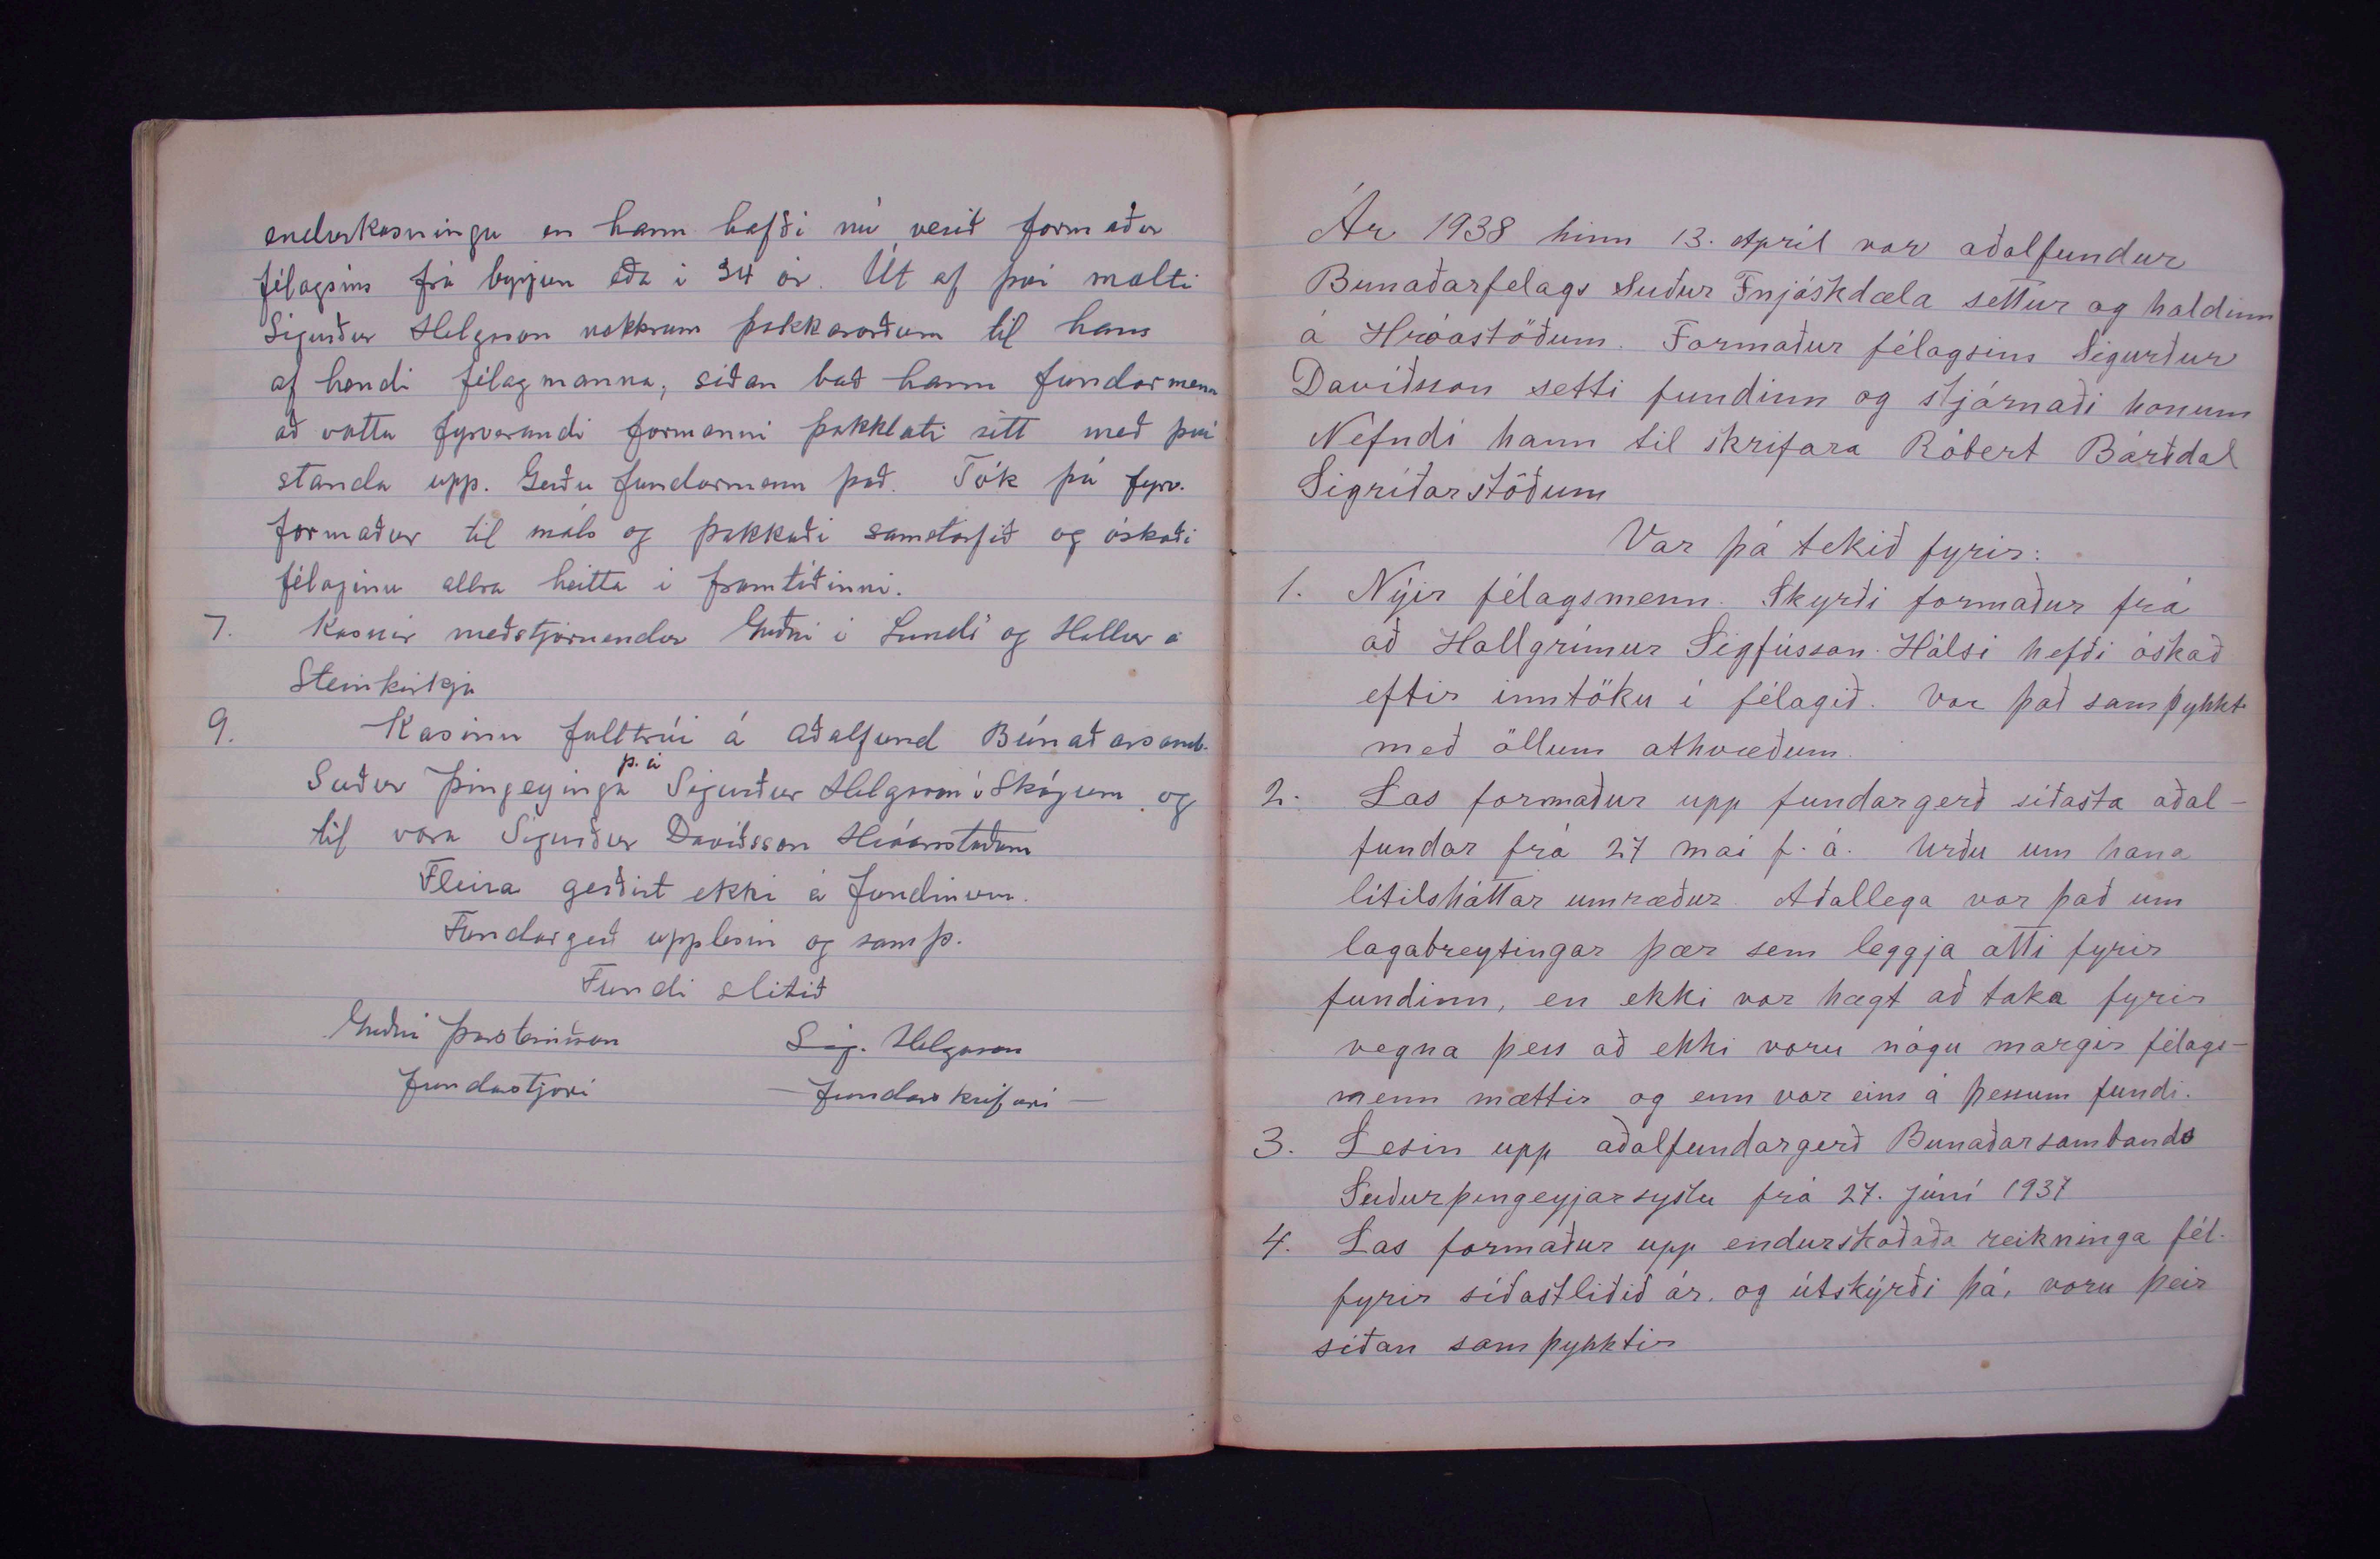 endurkosningu en hann hafði nú verið formaður
félagsins frá byrjun eða í 34 ár. Út af því mælti
Sigurður Helgason nokkrum þakkarorðum til hans
af hendi félagmanna, síðan bað hann fundarmenn
að votta fyrverandi formanni þakklæti sitt með því
standa upp. Gerðu fundarmenn það. Tók þá fyrv.
formaður til máls og þakkaði samstarfið og óskaði
félaginu allra heilla í framtíðinni.
7. Kosnir meðstjórnendur Guðni í Lundi og Hallur á
Steinkirkju
9. Kosinn fulltrúi á aðalfund Búnaðarsamb.
Suður Þingeyinga þ.á Sigurður Helgason í Skógum og
til vara Sigurður Davíðsson Hróarstöðum
Fleira gerðist ekki á fundinum.
Fundargerð upplesin og samþ.
Fundi slitið
Guðni Þorsteinsson Sig. Helgason
fundarstjóri – fundarskrifari –
Ár 1938 hinn 13. Apríl var aðalfundur
Bunaðarfelags Suður Fnjóskdæla settur og haldinn
á Hróastöðum. Formaður félagsins Sigurður
Davíðsson setti fundinn og stjórnaði honum
Nefndi hann til skrifara Róbert Bárðdal
Sigríðarstöðum
Var þá tekið fyrir:
1. Nýir félagsmenn. Skyrði formaður frá
að Hallgrímur Sigfússon Hálsi hefði óskað
eftir inntöku í félagið. Var það samþykkt
með öllum athvæðum.
2. Las formaður upp fundargerð síðasta aðal-
fundar frá 27 mai f.á. Urðu um hana
lítilsháttar umræður. Aðallega var það um
lagabreytingar þær sem leggja átti fyrir
fundinn, en ekki var hægt að taka fyrir
vegna þess að ekki voru nógu margir félags-
menn mættir og enn var eins á þessum fundi.
3. Lesin upp aðalfundargerð Bunaðarsambands
Suðurþingeyjarsyslu frá 27. júní 1937
4. Las formaður upp endurskoðaða reikninga fél.
fyrir síðastliðið ár, og útskýrði þá, voru þeir
síðan samþykktir